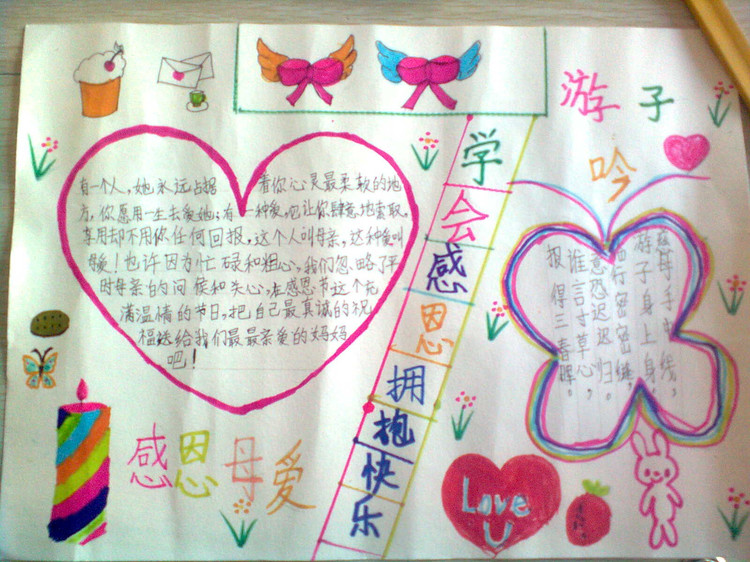 学会感恩拥抱快乐
游子吟
有一个人，她永远占据着你心灵最柔软的地
方，你愿用一生去爱她；有一种爱，它让你肆意地索取，
享用却不用你任何回报，这个人叫母亲，这种爱叫
母爱！也许因为忙碌和粗心，我们忽略了平
时母亲的问候和关心，在感恩节这个充
满温情的节日，把自己最真诚的祝
福送给我们最最亲爱的妈妈
吧！
慈母手中线，
游子身上
临行密密缝，
意恐迟迟归。
谁言寸草心，
报得三春晖。
感恩母爱
Love
U